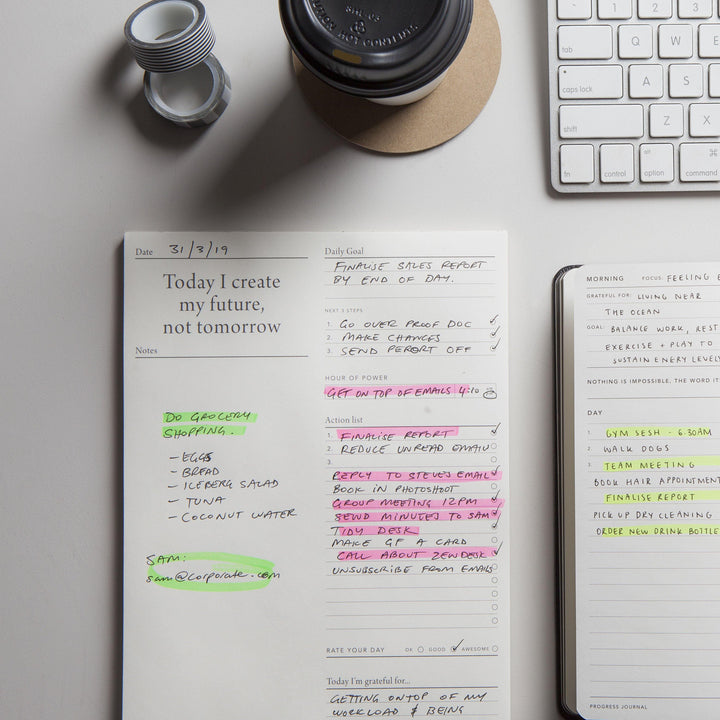 HOT CONTENTS
tab
Q
W
E
caps lock
A
S
D
shift
Z
X
fn
control
alt
option
⌘
command
Date 31/3/19
Today I create
my future,
not tomorrow
Notes
DO GROCERY
SHOPPING.
- EGGS
- BREAD
- ICEBERG SALAD
- TUNA
- COCONUT WATER
SAM:
sam@corporate.com
Daily Goal
FINALISE SALES REPORT
BY END OF DAY.
NEXT 3 STEPS
1. GO OVER PROOF DOC
2. MAKE CHANGES
3. SEND REPORT OFF
HOUR OF POWER
GET ON TOP OF EMAILS 4:10
Action list
1. FINALISE REPORT
2. REDUCE UNREAD EMAIL
3.
REPLY TO STEVE'S EMAIL
BOOK IN PHOTOSHOOT
GROUP MEETING 12PM
SEND MINUTES TO SAM
TIDY DESK
MAKE GF A CARD
CALL ABOUT ZENDESK
UNSUBSCRIBE FROM EMAILS
RATE YOUR DAY OK GOOD AWESOME
Today I'm grateful for...
GETTING ON TOP OF MY
WORKLOAD & BEING
MORNING FOCUS: FEELING
GRATEFUL FOR: LIVING NEAR
THE OCEAN
GOAL: BALANCE WORK, REST
EXERCISE + PLAY TO
SUSTAIN ENERY LEVEL
NOTHING IS IMPOSSIBLE. THE WORD IT
DAY
1. GYM SESH - 6.30AM
2. WALK DOGS
3. TEAM MEETING
BOOK HAIR APPOINTMENT
FINALISE REPORT
PICK UP DRY CLEANING
ORDER NEW DRINK BOTTLE
PROGRESS JOURNAL